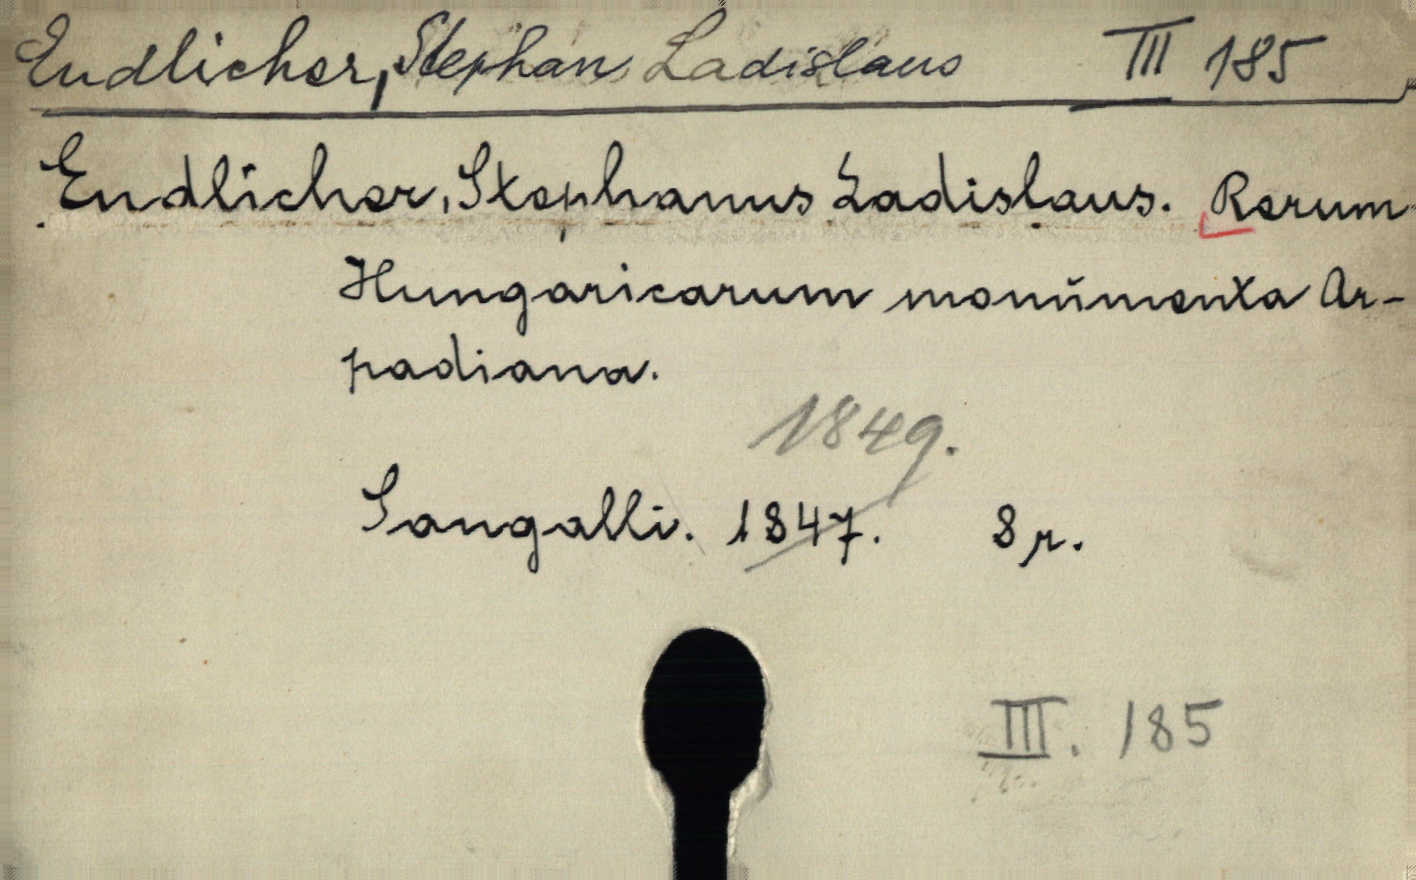 Endlicher, Stephan Ladislaus III 185
Endlicher, Stephanus Ladislaus. Rerum
Hungaricarum monŭmenta Ar-
padiana.
1849.
Sangalli. 1847. 8 r.
III. 185